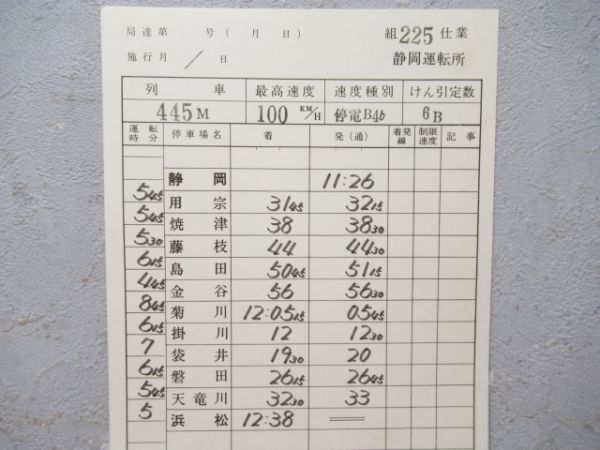 局達第 号(月 日) 組225仕業
施行月 / 日 静岡運転所
列車 最高速度 速度種別 けん引定数
445M 100 KM/H 停電B46 6B
運転時分 停車場名 着 発(通) 着発線 制限速度 記事
静岡 11:26
545
用宗 3145 3215
545
焼津 38 3830
530
藤枝 44 4430
615
島田 5045 5115
445
金谷 56 5630
845
菊川 12:0515 0545
615
掛川 12 1230
7
袋井 1930 20
615
磐田 2615 2645
545
天竜川 3230 33
5
浜松 12:38